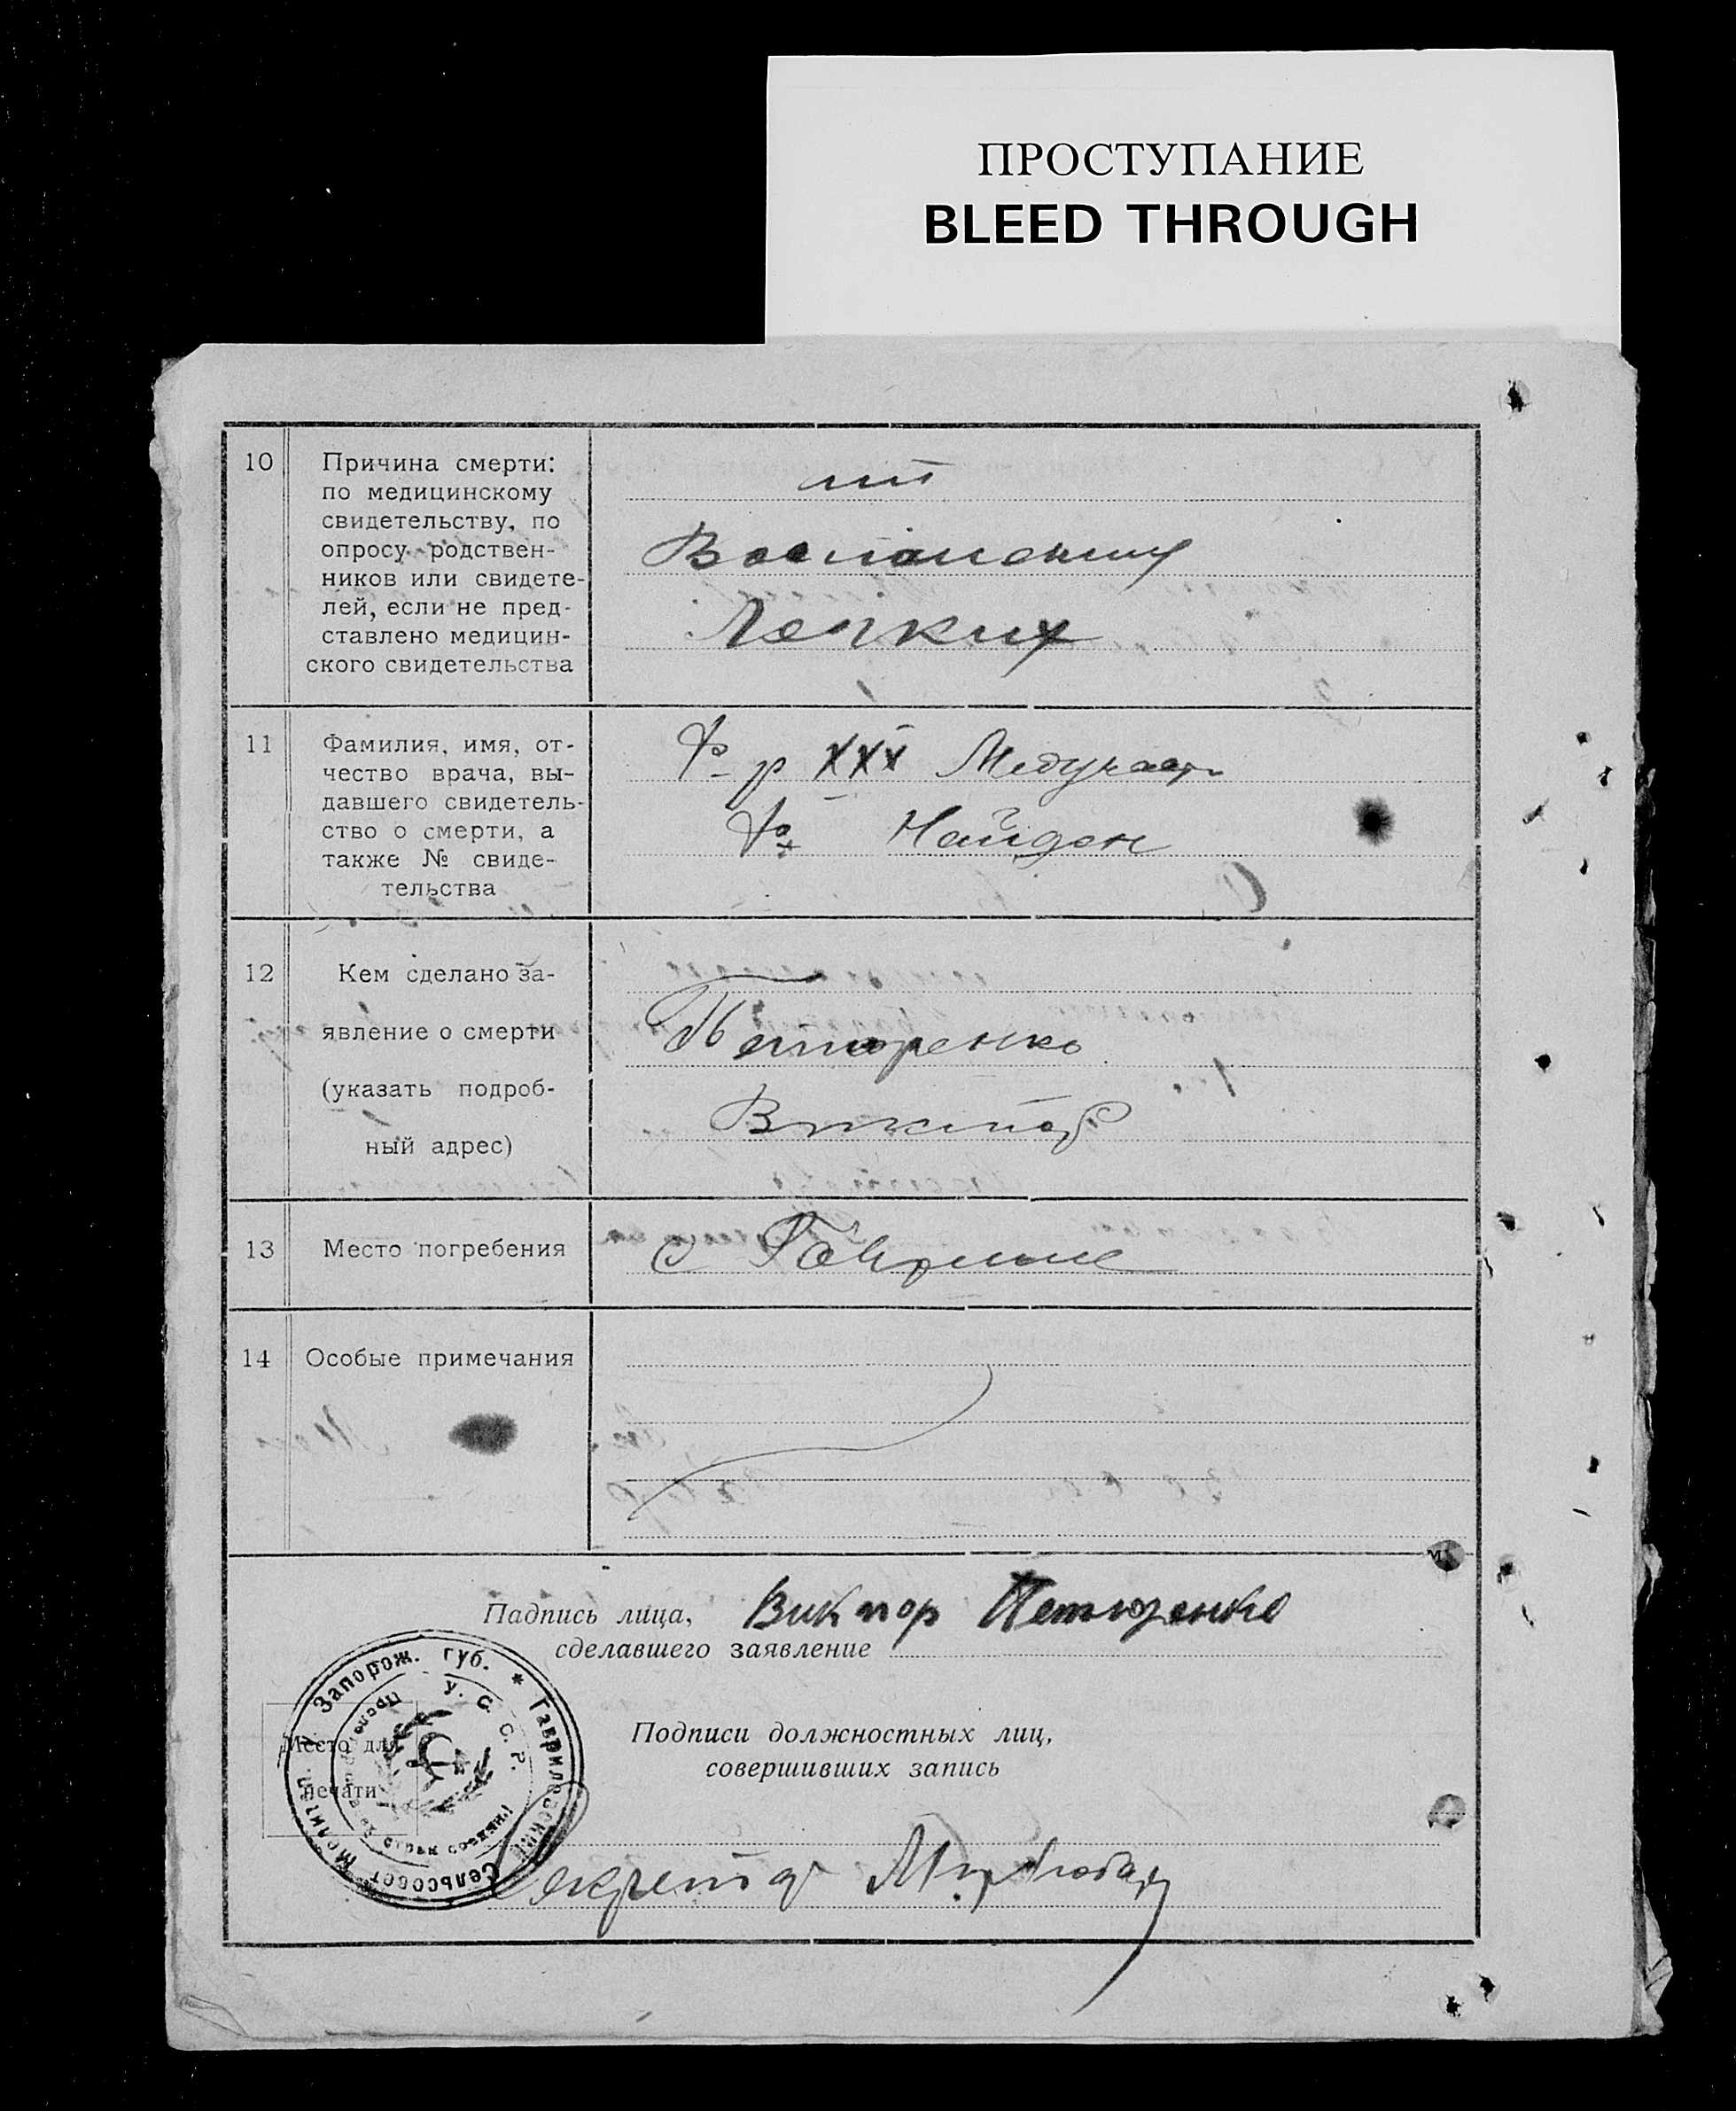 ПРОСТУПАНИЕ
BLEED THROUGH
10
Причина смерти:
по медицинскому
свидетельству, по
опросу родствен-
ников или свидете-
лей, если не пред-
ставлено медицин-
ского свидетельства
от
Легких
11
Фамилия, имя, от-
чество врача, вы-
давшего свидетель-
ство о смерти, а
также № свиде-
тельства
Ф-р XXX Медучаст
Найден
12
Кем сделано за-
явление о смерти
(указать подроб-
ный адрес)
Петюренко
Виктор
13
Место погребения
с
14
Особые примечания
Падпись лица,
сделавшего заявление
Виктор Петюренко
Место для
печати
Запорож. губ. * Гавриловский Сельсовет Мелит.
У. С. С. Р.
Подписи должностных лиц,
совершивших запись
Секретар